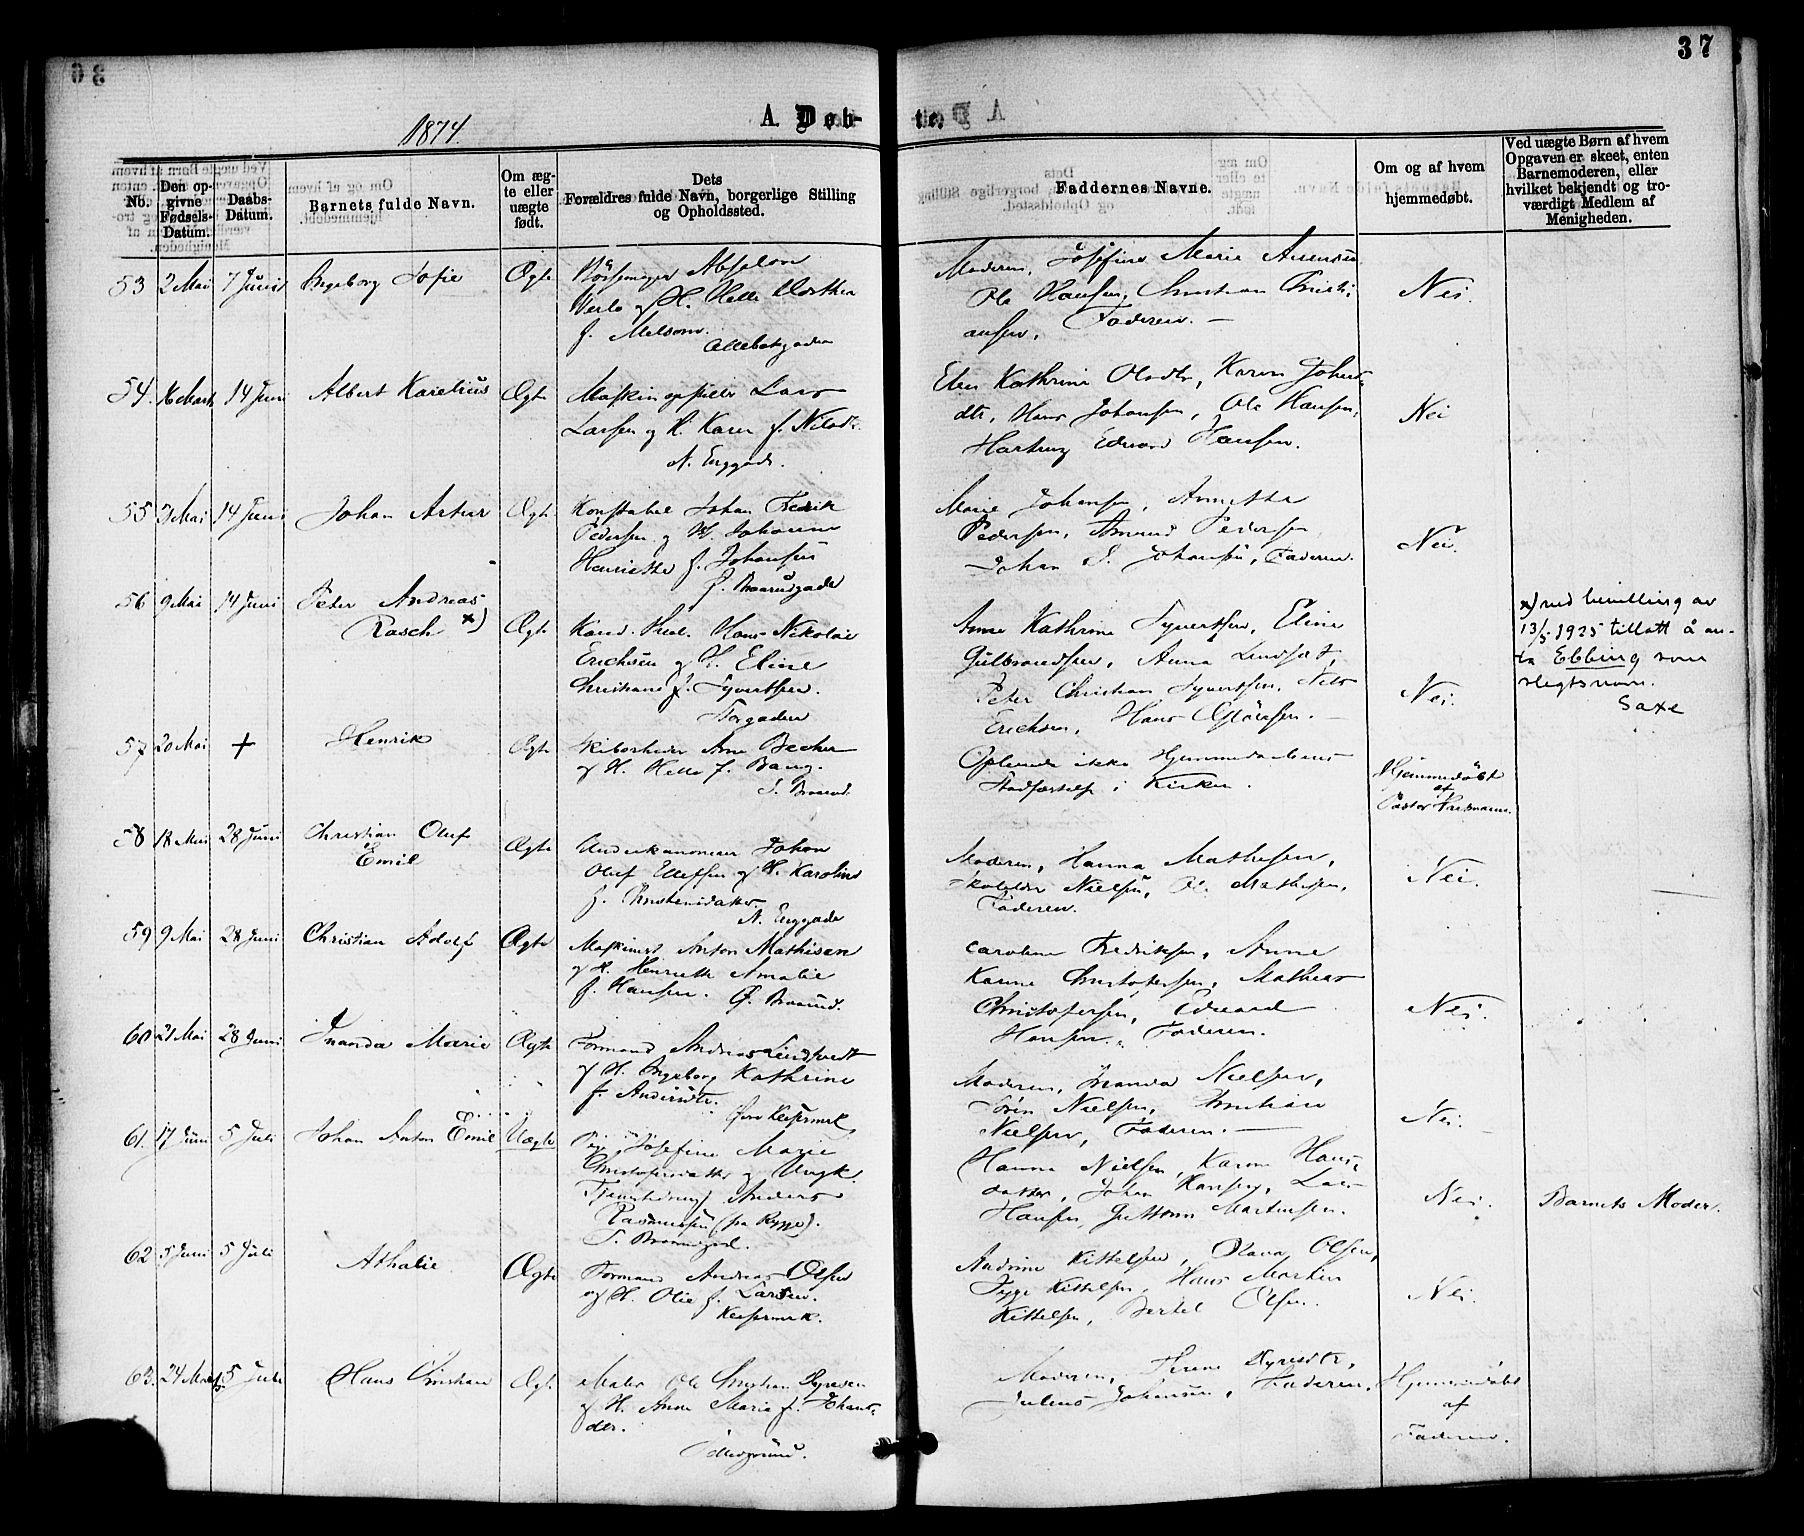 37
1874.
A. Døb-
te.
No.
Den op-
givne
Fødsels-
Datum.
Daabs-
Datum.
Barnets fulde Navn.
Om æg-
te eller
uægte
født.
Dets
Forældres fulde Navn, borgerlige Stilling
og Opholdssted.
Faddernes Navne.
Om og af hvem
hjemmedøbt.
Ved uægte Børn af hvem
Opgaven er skeet, enten
Barnemoderen, eller
hvilket bekjendt og tro-
værdigt Medlem af
Menigheden.
53 2 Mai 7 Juni Ingeborg Sofie Ægte
Absalon
og H. Helle Dorthea
f. Melsom.
Moderen, Josefine Marie
Ole Hansen, Christian Christi-
ansen, Faderen. —
Nei.
54. 16 Marts 14 Juni Albert Karelius Ægte
Maskinopstiller Lars
Larsen og H. Karen f. Nilsdtr.
N. Enggade.
Elen Kathrine Olsdtr, Karen Johns-
dtr, Hans Johansen, Ole Hansen,
Edvard Hansen.
Nei
55 3 Mai 14 Juni Johan Artur Ægte
Konstabel Johan Fredrik
Pedersen og H. Johanne
Henriette f. Johansen
Ø. Braarudgade
Marie Johansen, Annette
Pedersen, Amund Pedersen,
Johan S. Johansen, Faderen.
Nei.
56 9 Mai 14 Juni Peter Andreas
Rasch x)
Ægte
Kand. theol. Hans Nikolai
Erichsen og H. Eline
Christiane f. Syvertsen.
Torgaden
Anne Kathrine Syvertsen, Eline
Gulbrandsen, Anna
Peter Christian Syvertsen, Nils
Erichsen, Hans
Nei.
x) ved bevilling av
13/5-1925 tillatt å an-
ta Ebbing som
slegtsnavn.
Saxe
57 20 Mai + Henrik Ægte
Skibsreder Arne Becher
og H. Helle f. Bang.
S. Braarud.
Oplevede ikke Hjemmedaabens
Stadfæstelse i Kirken.
Hjemmedøbt
af
Pastor
58 18 Mai 28 Juni Christian Oluf
Emil
Ægte
Underkanoneer Johan
Oluf Ellefsen og H. Karoline
f. Christensdatter.
N. Enggade
Moderen, Hanna Mathisen,
Nielsen, Ole Mathisen,
Faderen.
Nei.
59 9 Mai 28 Juni Christian Adolf Ægte
Maskinist Anton Mathisen
og H. Henriette Amalie
f. Hansen. Ø. Braarud.
Caroline Fredriksen, Anne
Karine Christofersen, Mathias
Christofersen, Edvard
Hansen, Faderen.
Nei.
60 21 Mai 28 Juni Inanda Marie Ægte
Formand Andreas
og H. Ingeborg Kathrine
f. Andersdtr.
Moderen, Inanda Nielsen,
Sørin Nielsen, Christian
Nielsen, Faderen. —
Nei.
61. 17 Juni 5 Juli Johan Anton Emil Uægte
Pige Josefine Marie
Christofersdatter og Ungk.
Tjenestedreng Anders
Rasmussen (fra Rygge).
S. Braarudgad.
Hanna Nielsen, Karen Hans-
datter, Johan Hansen, Lars
Hansen, Guttorm Martinsen.
Nei.
Barnets Moder.
62 5 Juni 5 Juli Athalie Ægte
Formand Andreas Olsen
og H. Olie f. Larsen.
Andrine Kittelsen, Olava Olsen,
Kittelsen, Hans Martin
Kittelsen, Bertel Olsen.
Nei.
63. 24 Marts 5 Juli Hans Christian Ægt.
Maler Ole Christian Syvesen
og H. Anne Marie f. Johans-
der.
Moderen, Syvesdtr,
Julius Johansen, Faderen.
Hjemmedøbt
af
Faderen.